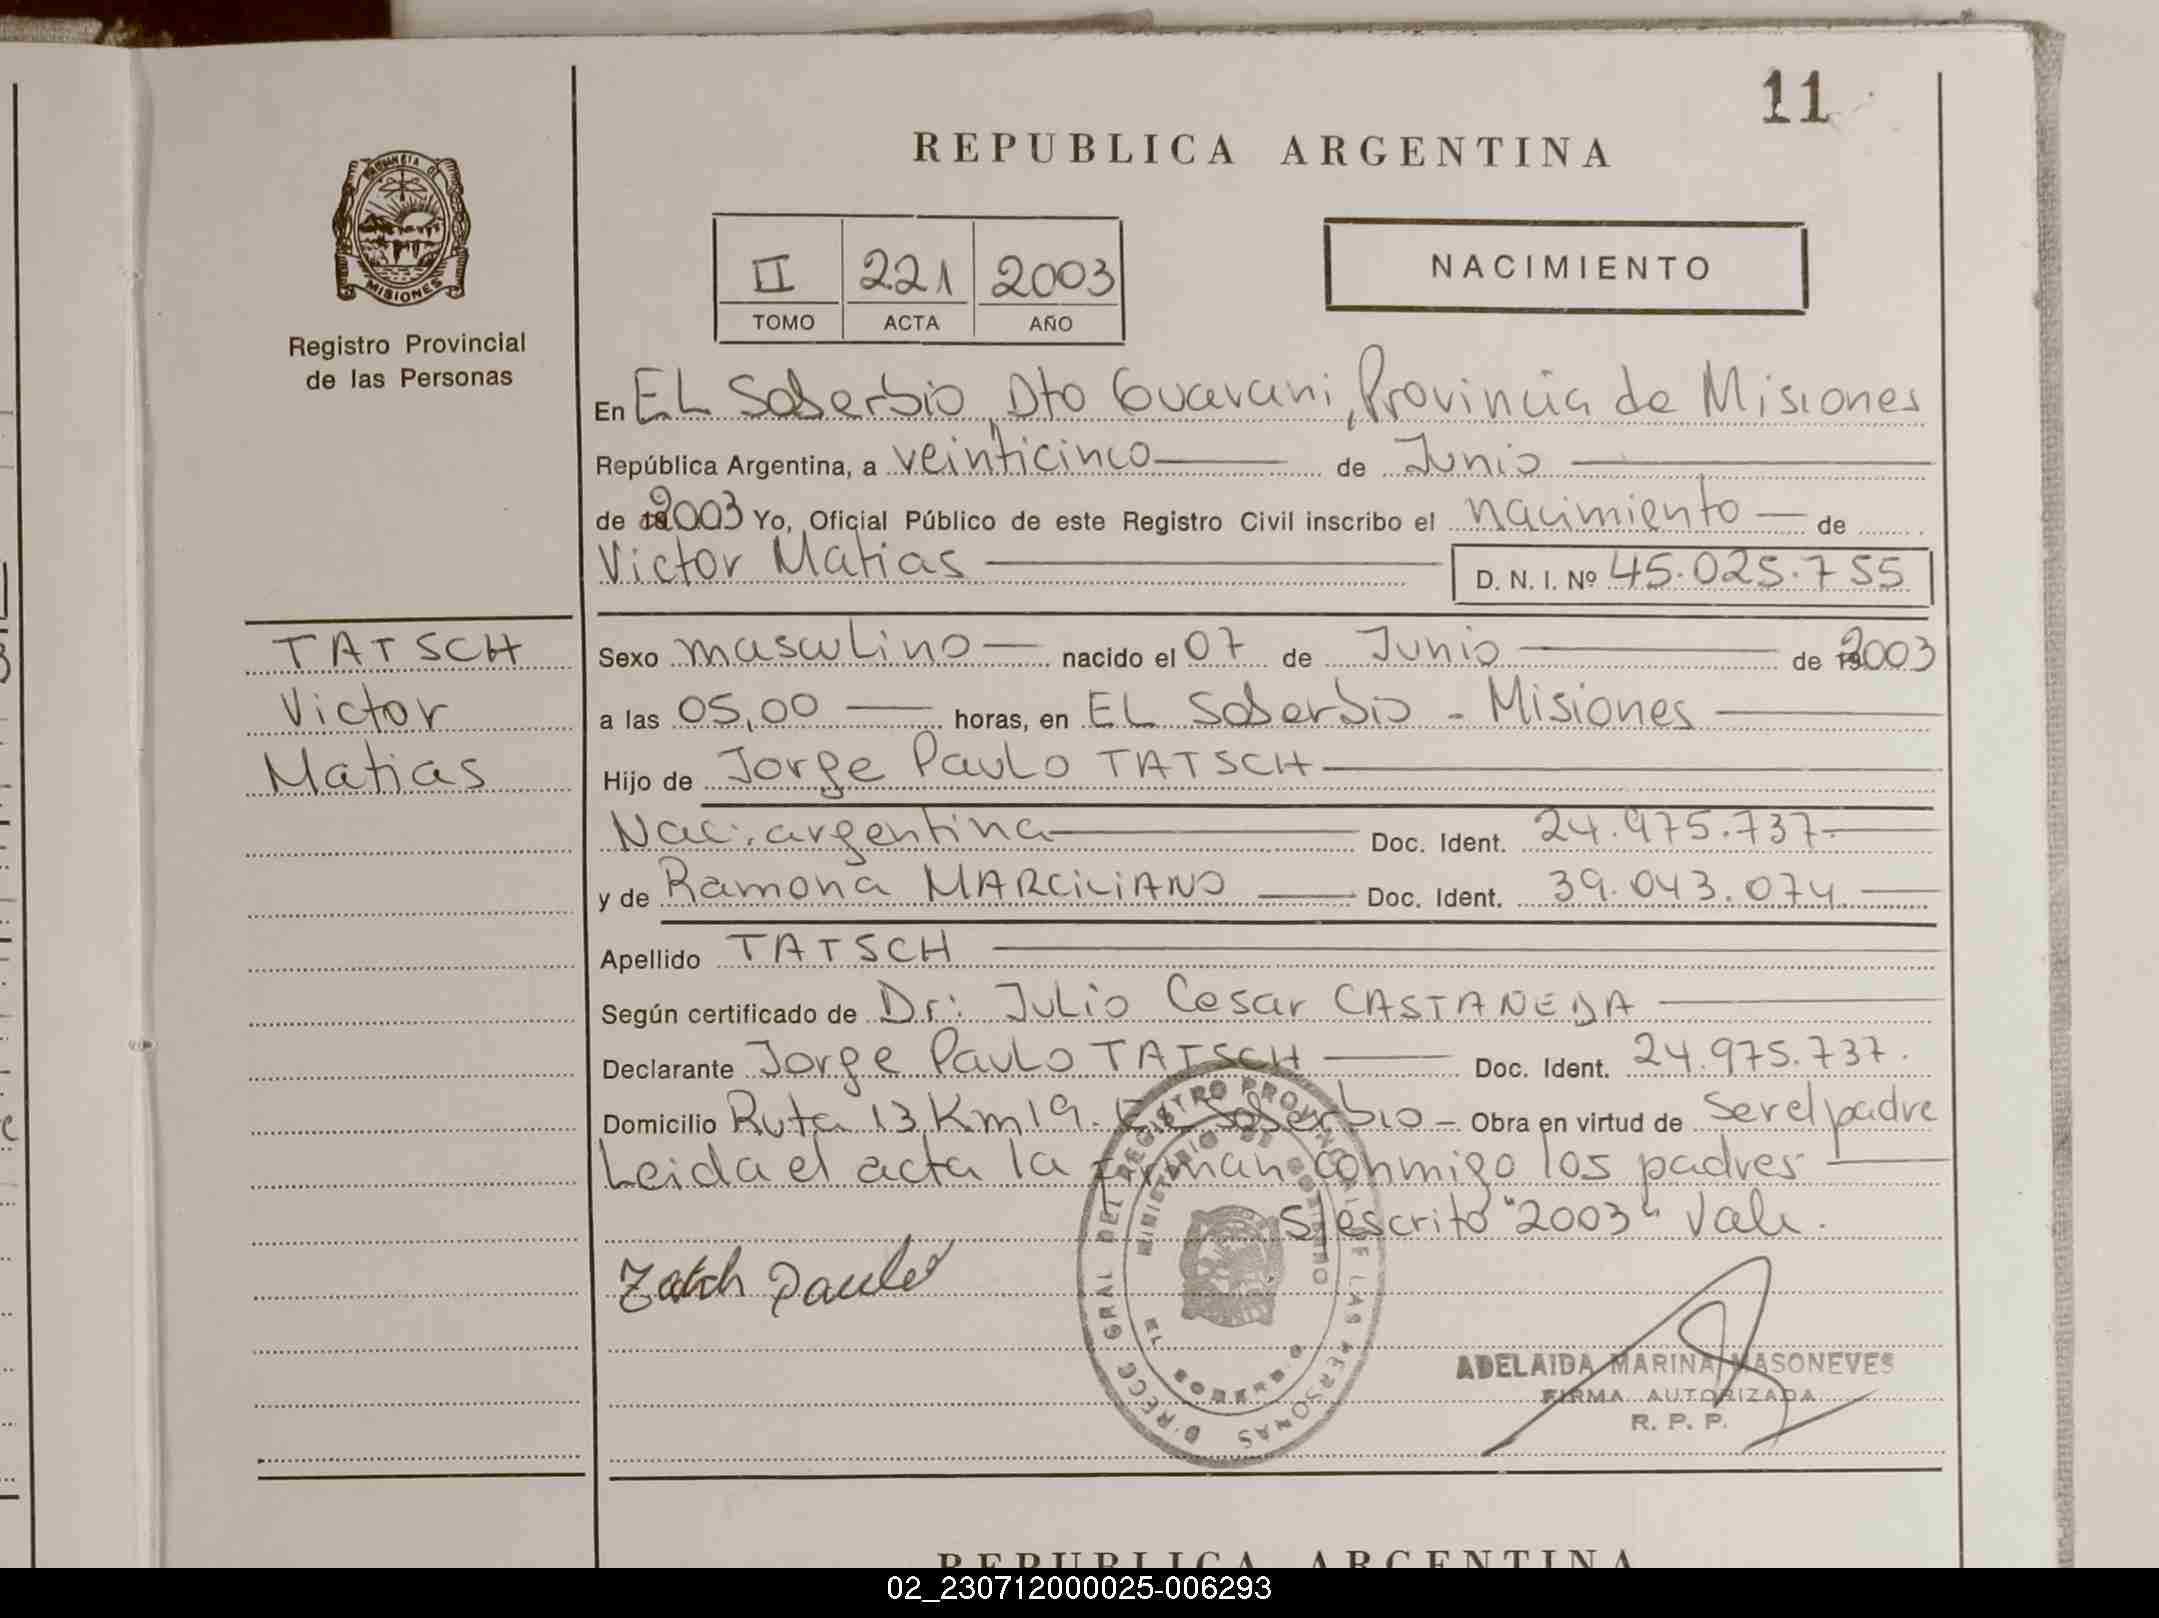 11
REPUBLICA ARGENTINA
PROVINCIA DE
MISIONES
Registro Provincial
de las Personas
II 221 2003
TOMO ACTA AÑO
NACIMIENTO
En EL Soberbio, Dto Guarani, Provincia de Misiones
República Argentina, a veinticinco de Junio
de 2003 Yo, Oficial Público de este Registro Civil inscribo el nacimiento de
Victor Matias D. N. I. Nº 45.025.755
TATSCH
Victor
Matias
Sexo masculino nacido el 07 de Junio de 2003
a las 05,00 horas, en EL Soberbio - Misiones
Hijo de Jorge Paulo TATSCH
Nac. argentina Doc. Ident. 24.975.737
y de Ramona MARCILIANO Doc. Ident. 39.043.074
Apellido TATSCH
Según certificado de Dr: Julio Cesar CASTANEDA
Declarante Jorge Paulo TATSCH Doc. Ident. 24.975.737.
Domicilio Ruta 13 Km 19. El Soberbio - Obra en virtud de ser el padre
Leida el acta la firman conmigo los padres
S/escrito "2003" Vale.
DIRECC GRAL DEL REGISTRO PROVINCIAL DE LAS PERSONAS
MINISTERIO DE GOBIERNO
EL SOBERBIO
Paulo
ADELAIDA MARINA MASONEVES
FIRMA AUTORIZADA
R. P. P.
REPUBLICA ARGENTINA
02_230712000025-006293